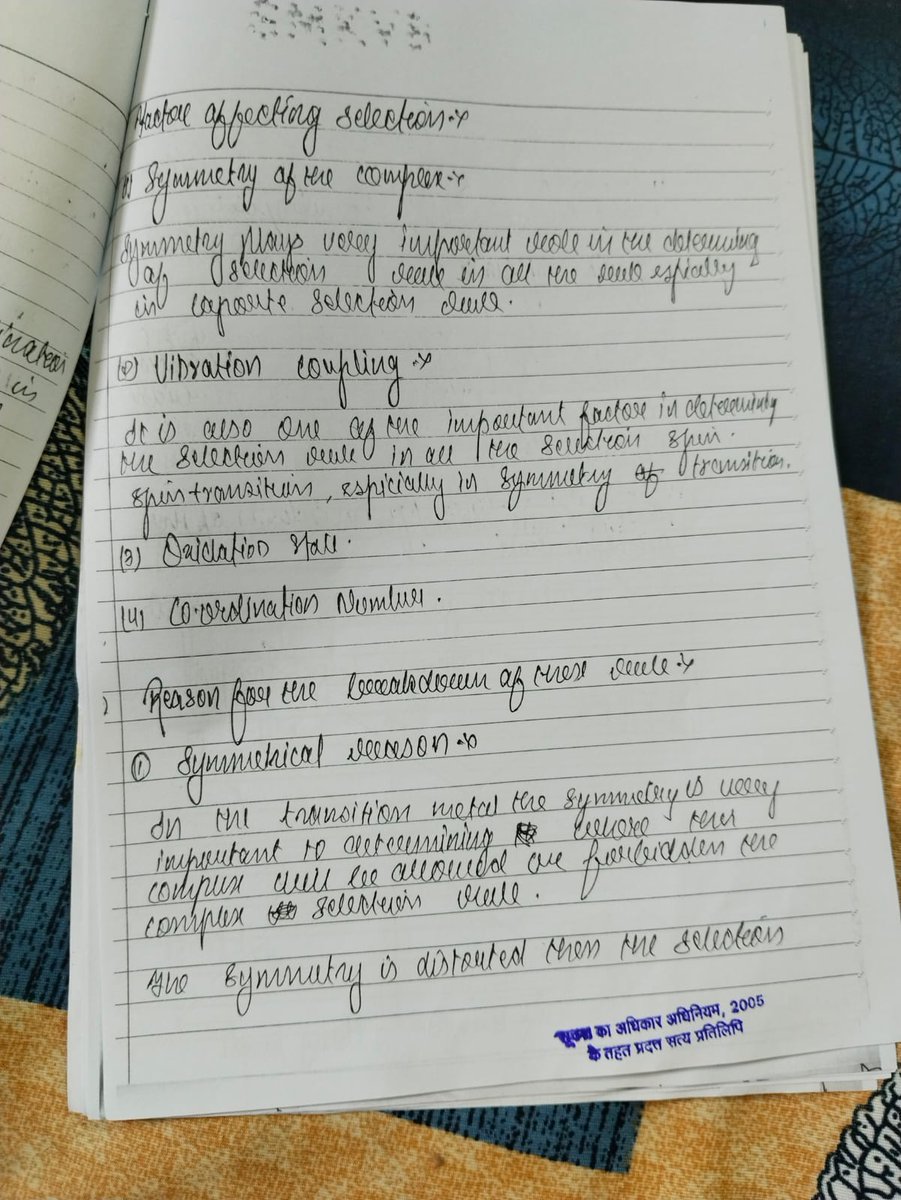 Factor affecting selection:-
(1) Symmetry of the complex:-
Symmetry plays very important role in the determing
of selection rule in all the rule espially
in laporite selection rule.
(2) Vibration coupling:-
It is also one of the important factor in determinig
the selection rule in all the selection spin.
spin transition, espicially in symmetry of transition.
(3) Oxidation state.
(4) Co-ordination Number.
Reason for the breakdown of these rule:-
① Symmetrical reason:-
In the transition metal the symmetry is very
important to determining where the
complex will be allowed or forbidden the
complex selection rule.
the symmetry is distorted then the selection
का अधिकार अधिनियम, 2005
के तहत प्रदत्त सत्य प्रतिलिपि
ication
is